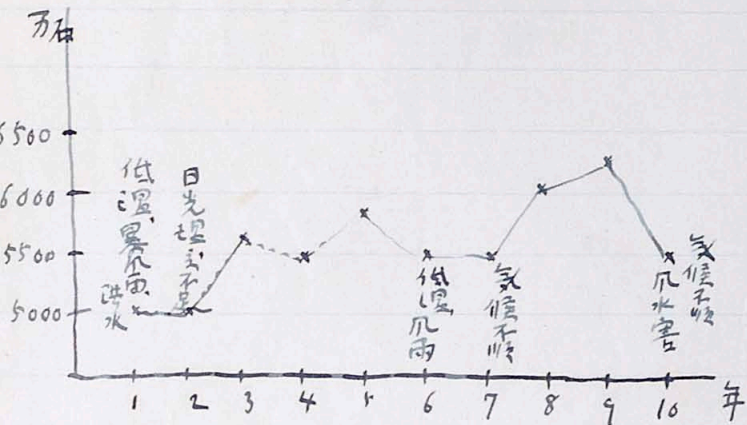 万石
6500
6000
5500
5000
低温、暴風雨、
洪水
日光温度不足
低温風雨
気候不順
気候不順
風水害
1 2 3 4 5 6 7 8 9 10 年